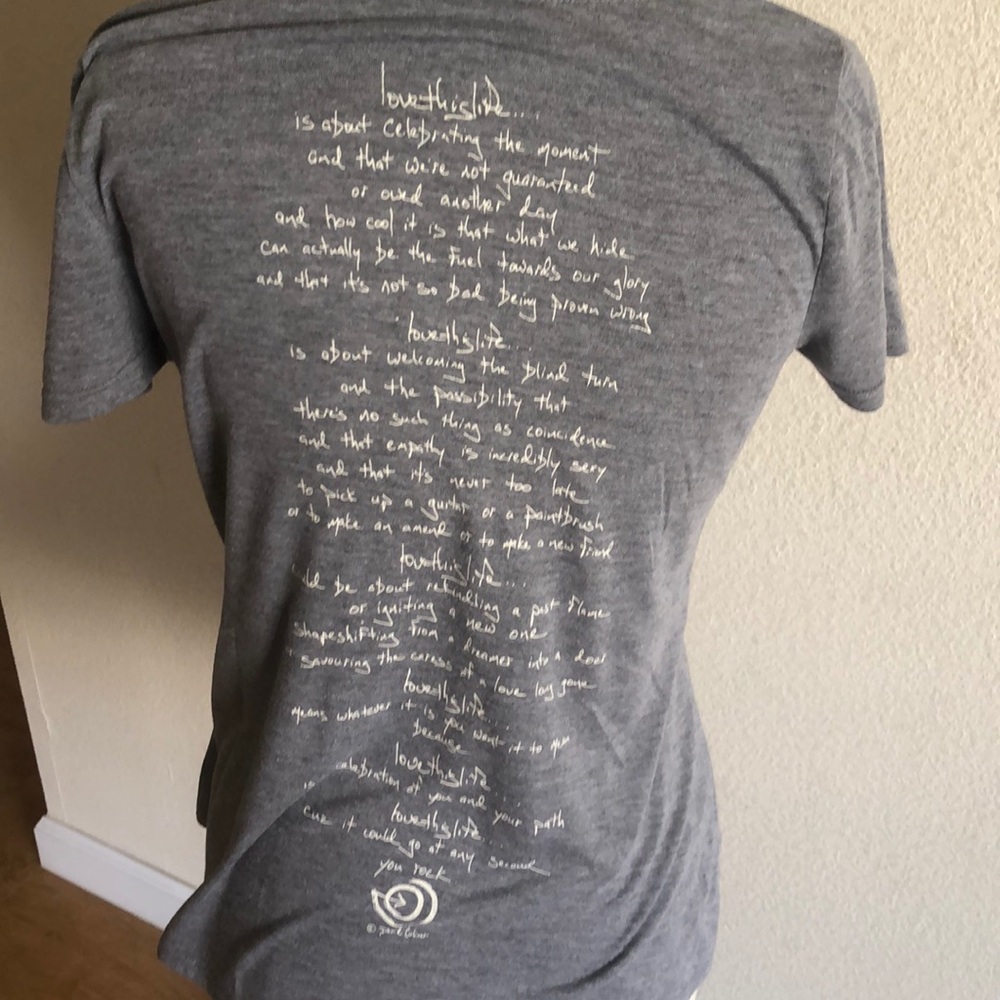 lovethislife...
is about celebrating the moment
and that we're not guaranteed
or owed another day
and how cool it is that what we hide
can actually be the fuel towards our glory
and that it's not so bad being proven wrong
lovethislife...
is about welcoming the blind turn
and the possibility that
there's no such thing as coincidence
and that empathy is incredibly sexy
and that it's never too late
to pick up a guitar or a paintbrush
or to make an amend or to make a new friend
lovethislife...
be about rekindling a past flame
or igniting a new one
shapeshifting from a dreamer into a doer
savouring the caress of a love long gone
lovethislife...
means whatever it is you want it to
because
lovethislife...
celebration of you and your path
lovethislife...
cuz it could go at any second
you rock
©